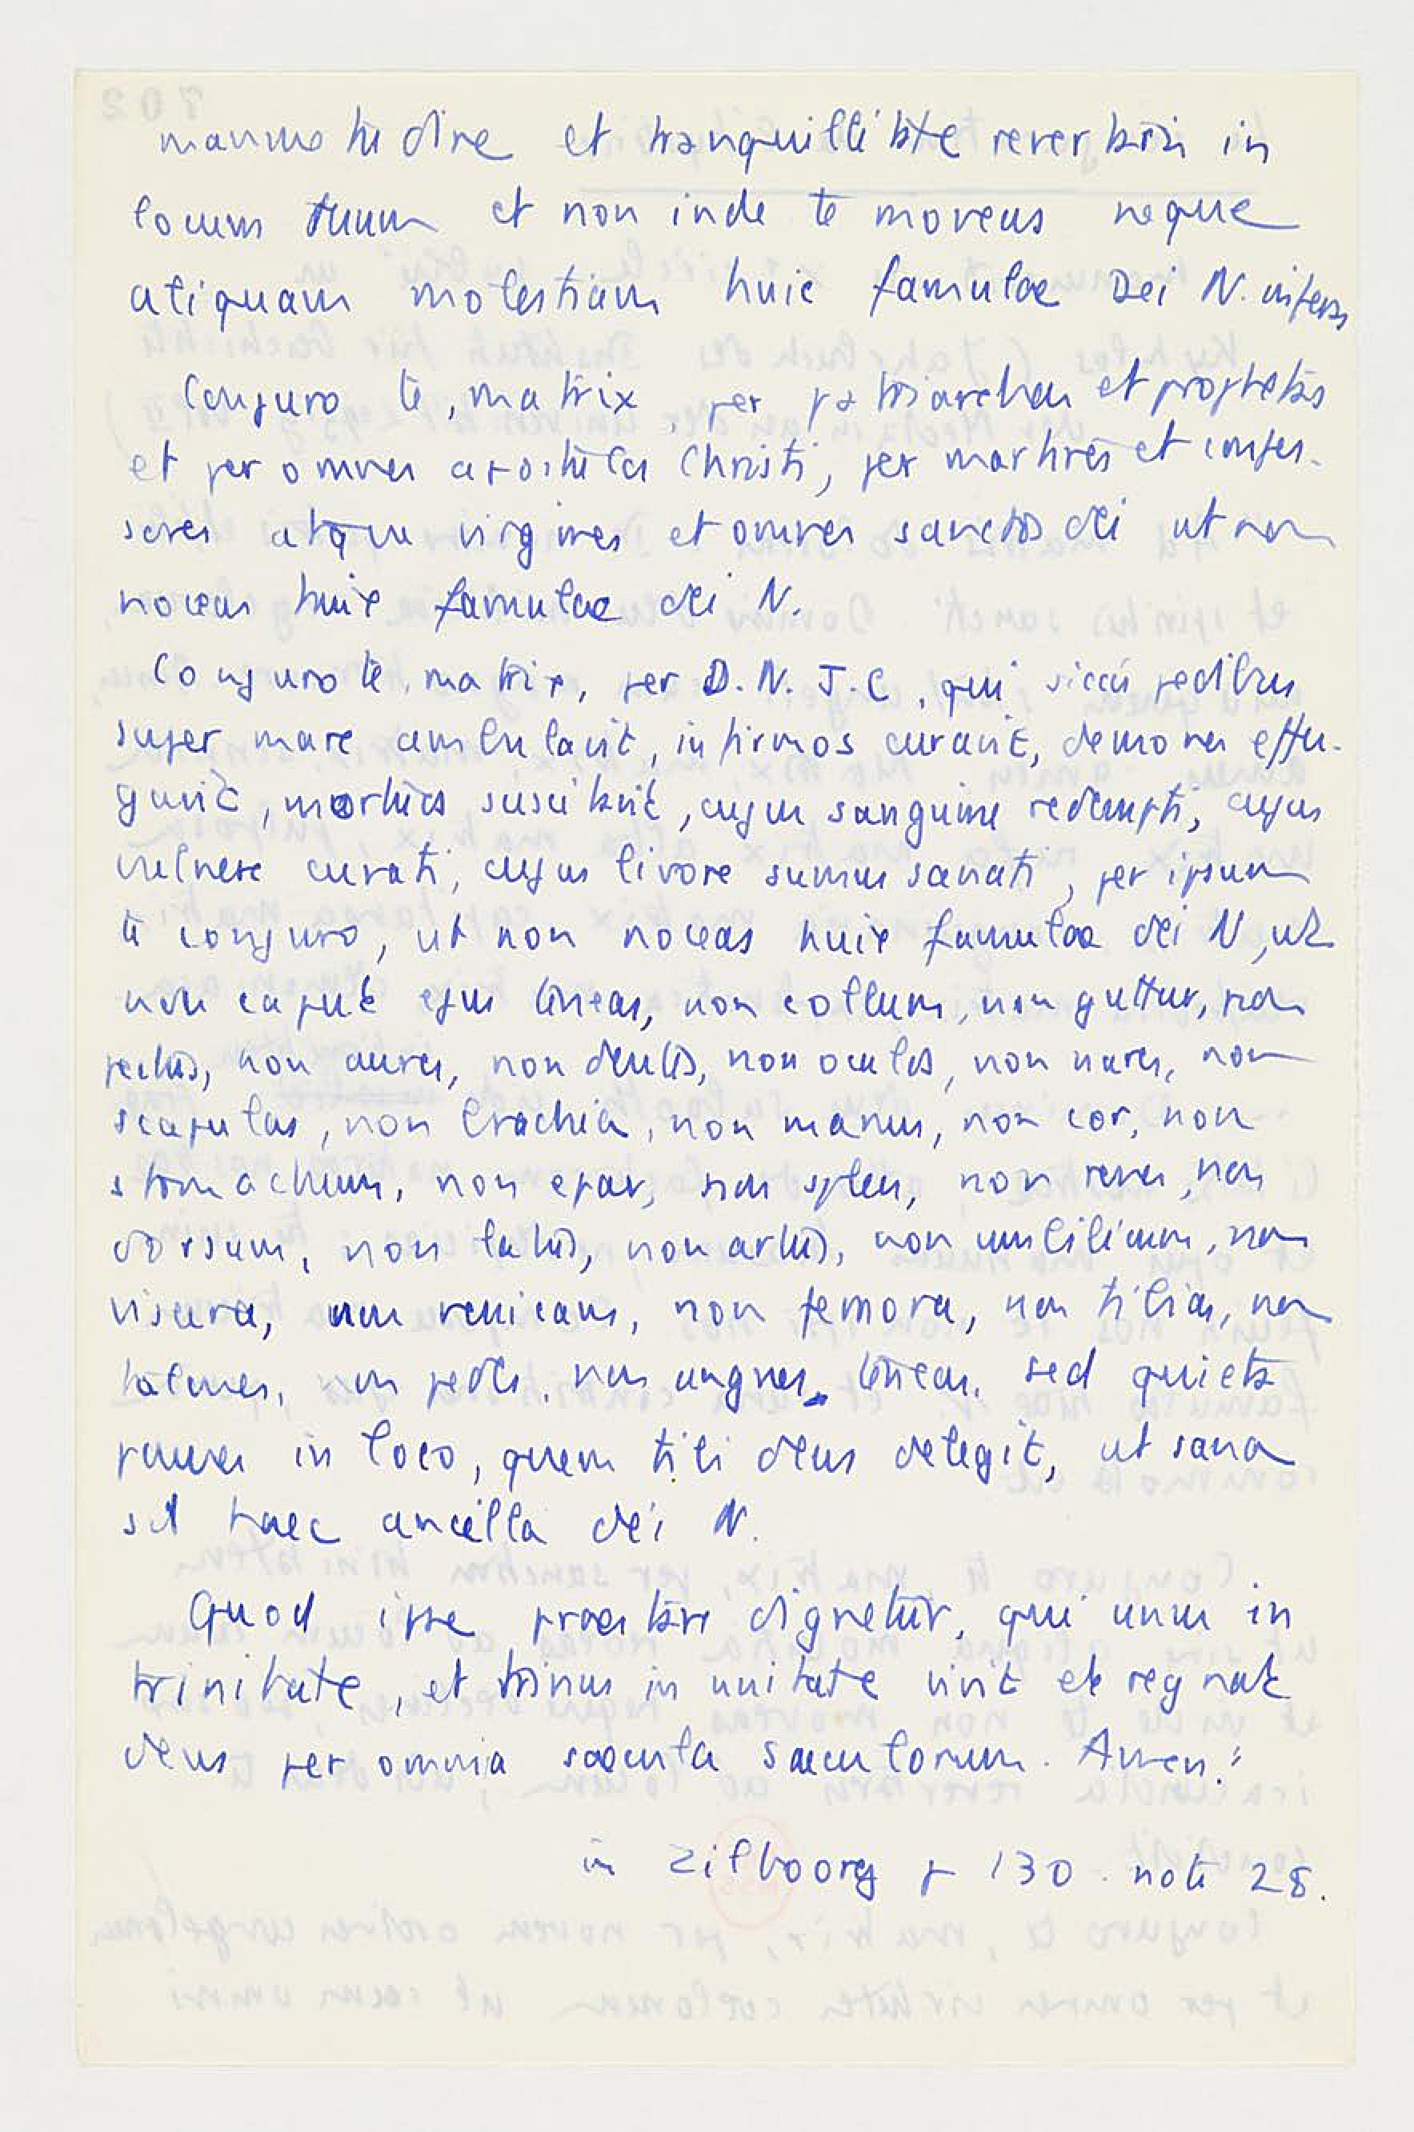 mansuetudine et tranquillitate revertaris in
locum tuum et non inde te moveas neque
aliquam molestiam huic famulae Dei N. inferas
Conjuro te, matrix, per patriarchas et prophetas
et per omnes apostolos Christi, per martires et confes-
sores atque virgines et omnes sanctos dei ut non
noceas huic famulae dei N.
Conjuro te, matrix, per D. N. J. C, qui siccis pedibus
super mare ambulavit, infirmos curavit, demones effu-
gavit, mortuos suscitavit, cujus sanguine redempti, cujus
vulnere curati, cujus livore sumus sanati, per ipsum
te conjuro, ut non noceas huic famulae dei N, ut
non caput ejus teneas, non collum, non guttur, non
pectus, non aures, non dentes, non oculos, non nares, non
scapulas, non brachia, non manus, non cor, non
stomachum, non epar, non splen, non renes, non
dorsum, non latus, non artus, non umbilicum, non
viscera, non vesicam, non femora, non tibias, non
talones, non pedes, non ungues teneas, sed quieta
permanes in loco, quem tibi deus delegit, ut sana
sit haec ancilla dei N.
Quod ipse praestare dignetur, qui unus in
trinitate, et trinus in unitate vivit et regnat
deus per omnia saecula saeculorum. Amen."
in Zilboorg p 130. note 28.